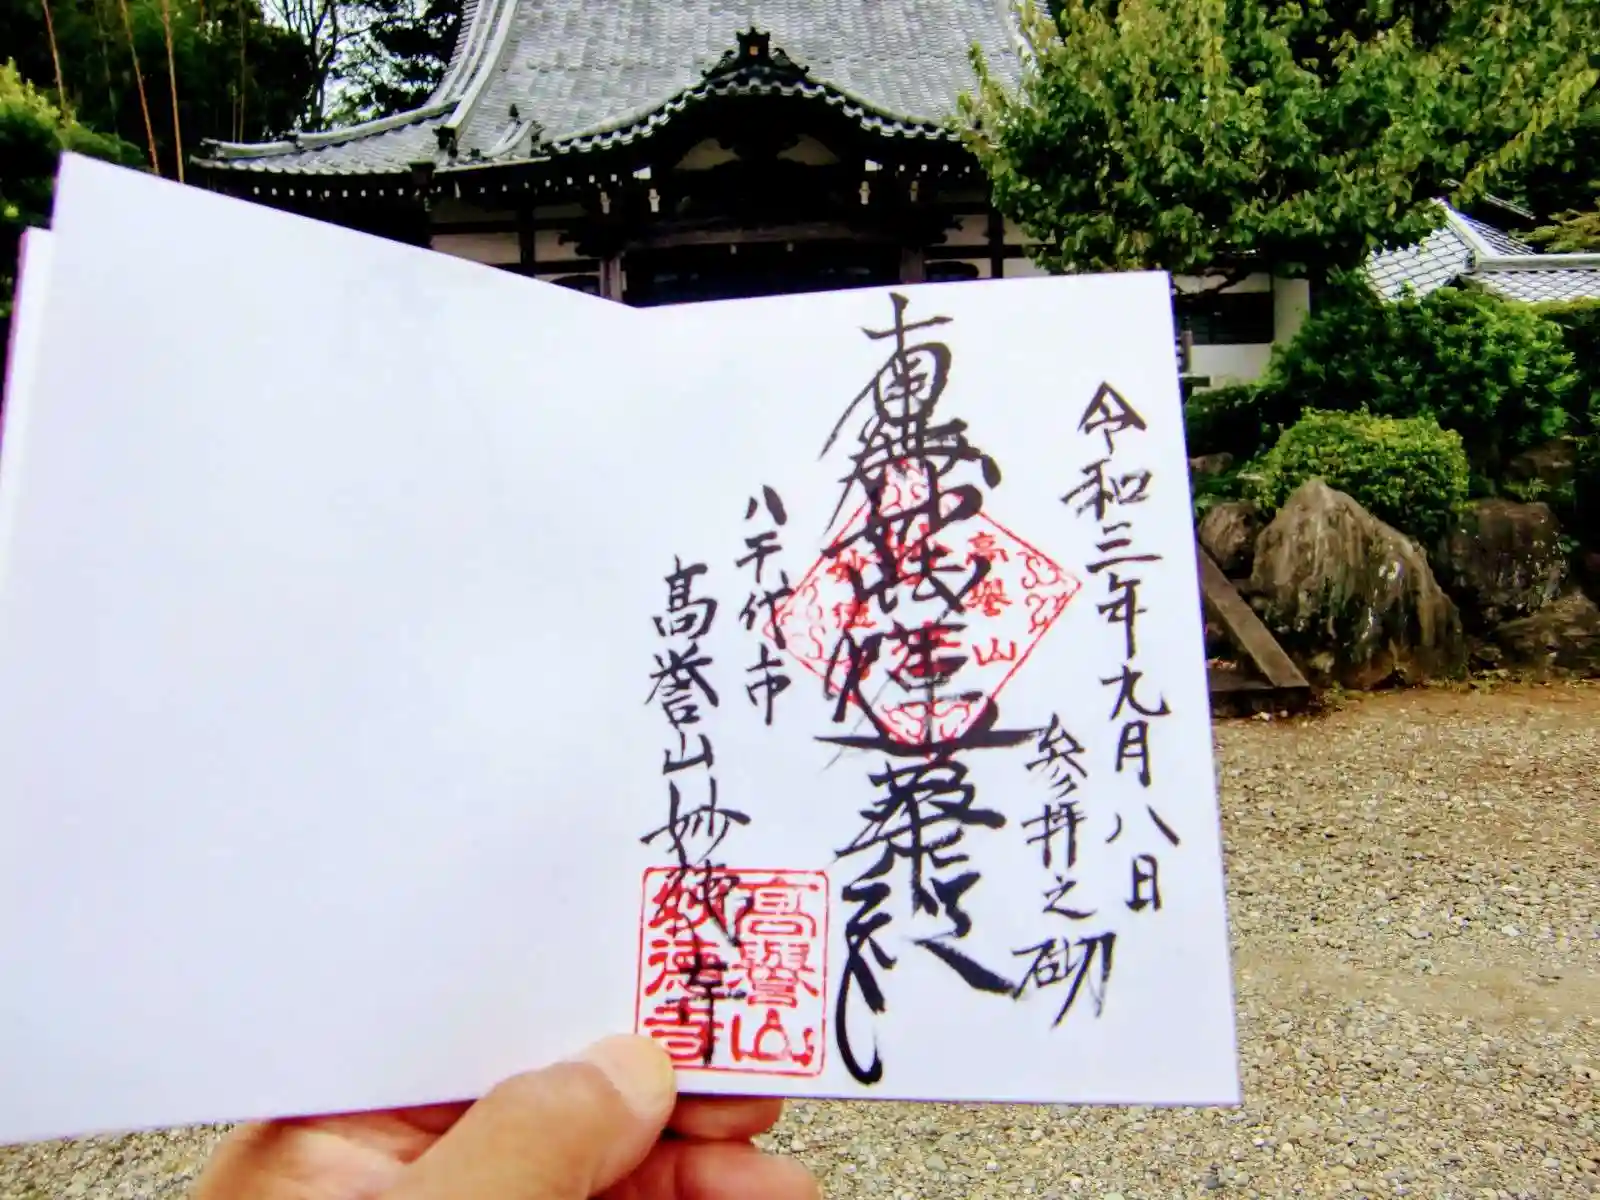 令和三年九月八日
参拝之砌
南無妙法蓮華経
八千代市
高誉山妙徳寺
高譽山
妙徳寺
高譽山
妙徳寺